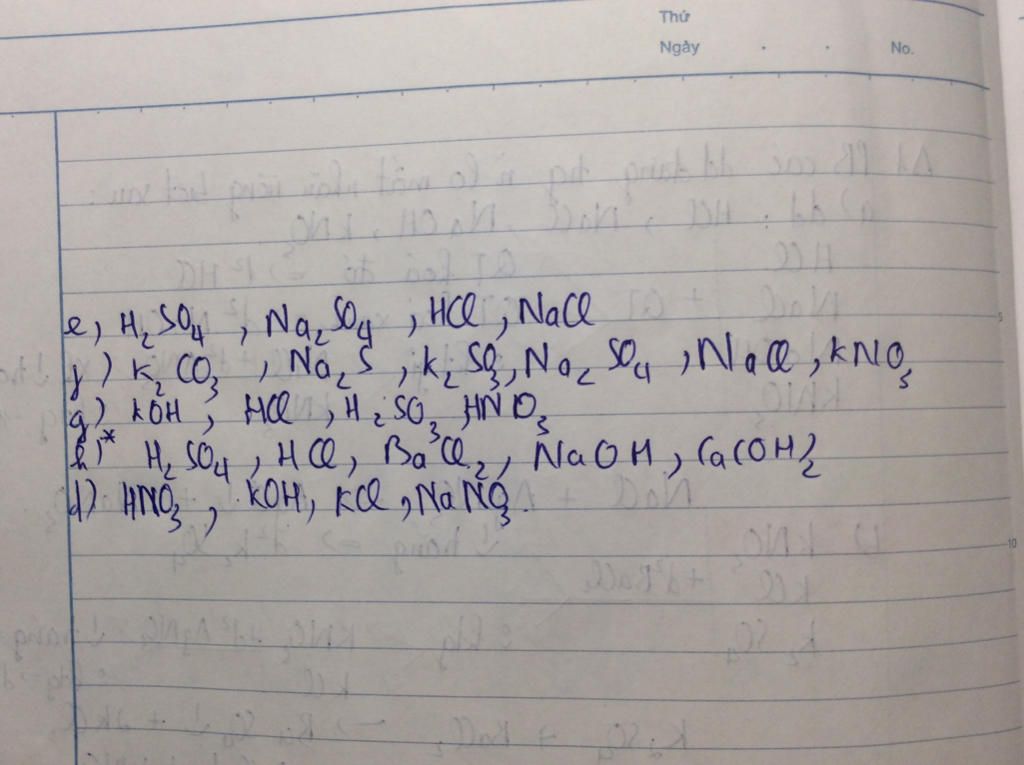 Thứ
Ngày . . No.
e, H₂SO₄, Na₂SO₄, HCl, NaCl
f) K₂CO₃, Na₂S, K₂SO₃, Na₂SO₄, NaCl, KNO₃
g) KOH, HCl, H₂SO₃, HNO₃
h)* H₂SO₄, HCl, BaCl₂, NaOH, Ca(OH)₂
d) HNO₃, KOH, KCl, NaNO₃.
5
10